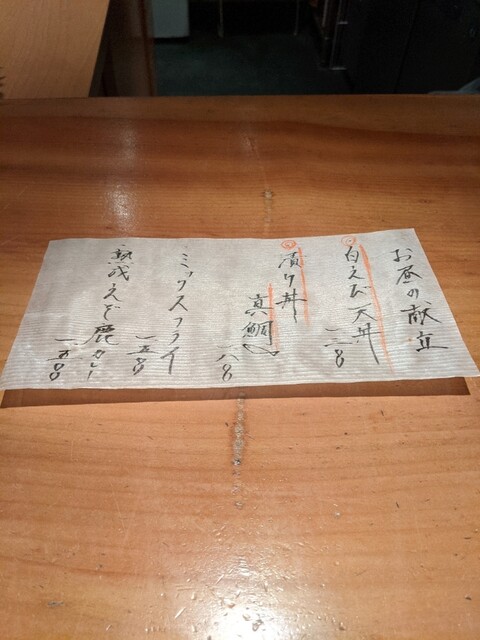 お昼の献立
白えび天丼
漬け丼
真鯛
一八〇〇
ミックスフライ
一五〇〇
熟成えぞ鹿カレー
一五〇〇